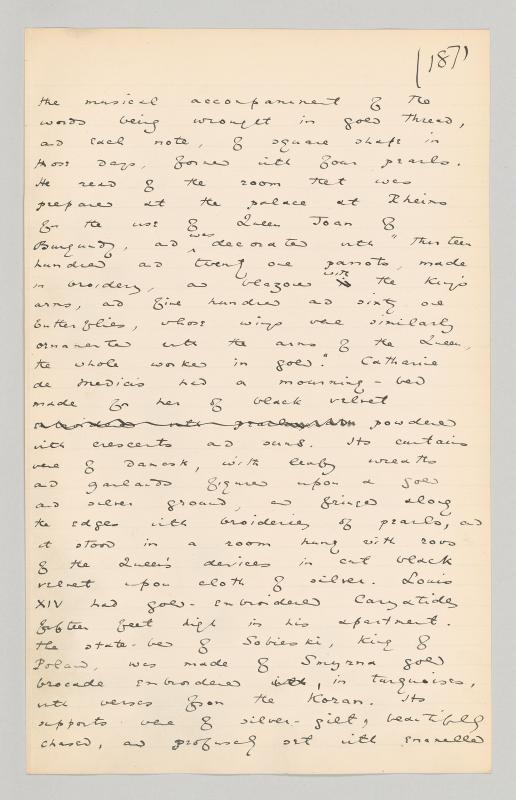 (187)
the musical accompaniment of the
words being wrought in gold thread,
and each note, of square shape in
those days, formed with four pearls.
He read of the room that was
prepared at the palace at Rheims
for the use of Queen Joan of
Burgundy, and was decorated with "thirteen
hundred and twenty one parrots, made
in broidery, and blazoned with the King's
arms, and five hundred and sixty one
butterflies, whose wings were similarly
ornamented with the arms of the Queen,
the whole worked in gold." Catharine
de Medicis had a mourning-bed
made for her of black velvet
powdered
with crescents and suns. Its curtains
were of damask, with leafy wreaths
and garlands figured upon a gold
and silver ground, and fringed along
the edges with broideries of pearls, and
it stood in a room hung with rows
of the Queen's devices in cut black
velvet upon cloth of silver. Louis
XIV had gold-embroidered Caryatides
fifteen feet high in his apartment.
The state-bed of Sobieski, King of
Poland, was made of Smyrna gold
brocade embroidered in turquoises,
with verses from the Koran. Its
supports were of silver-gilt, beautifully
chased, and profusely set with enamelled